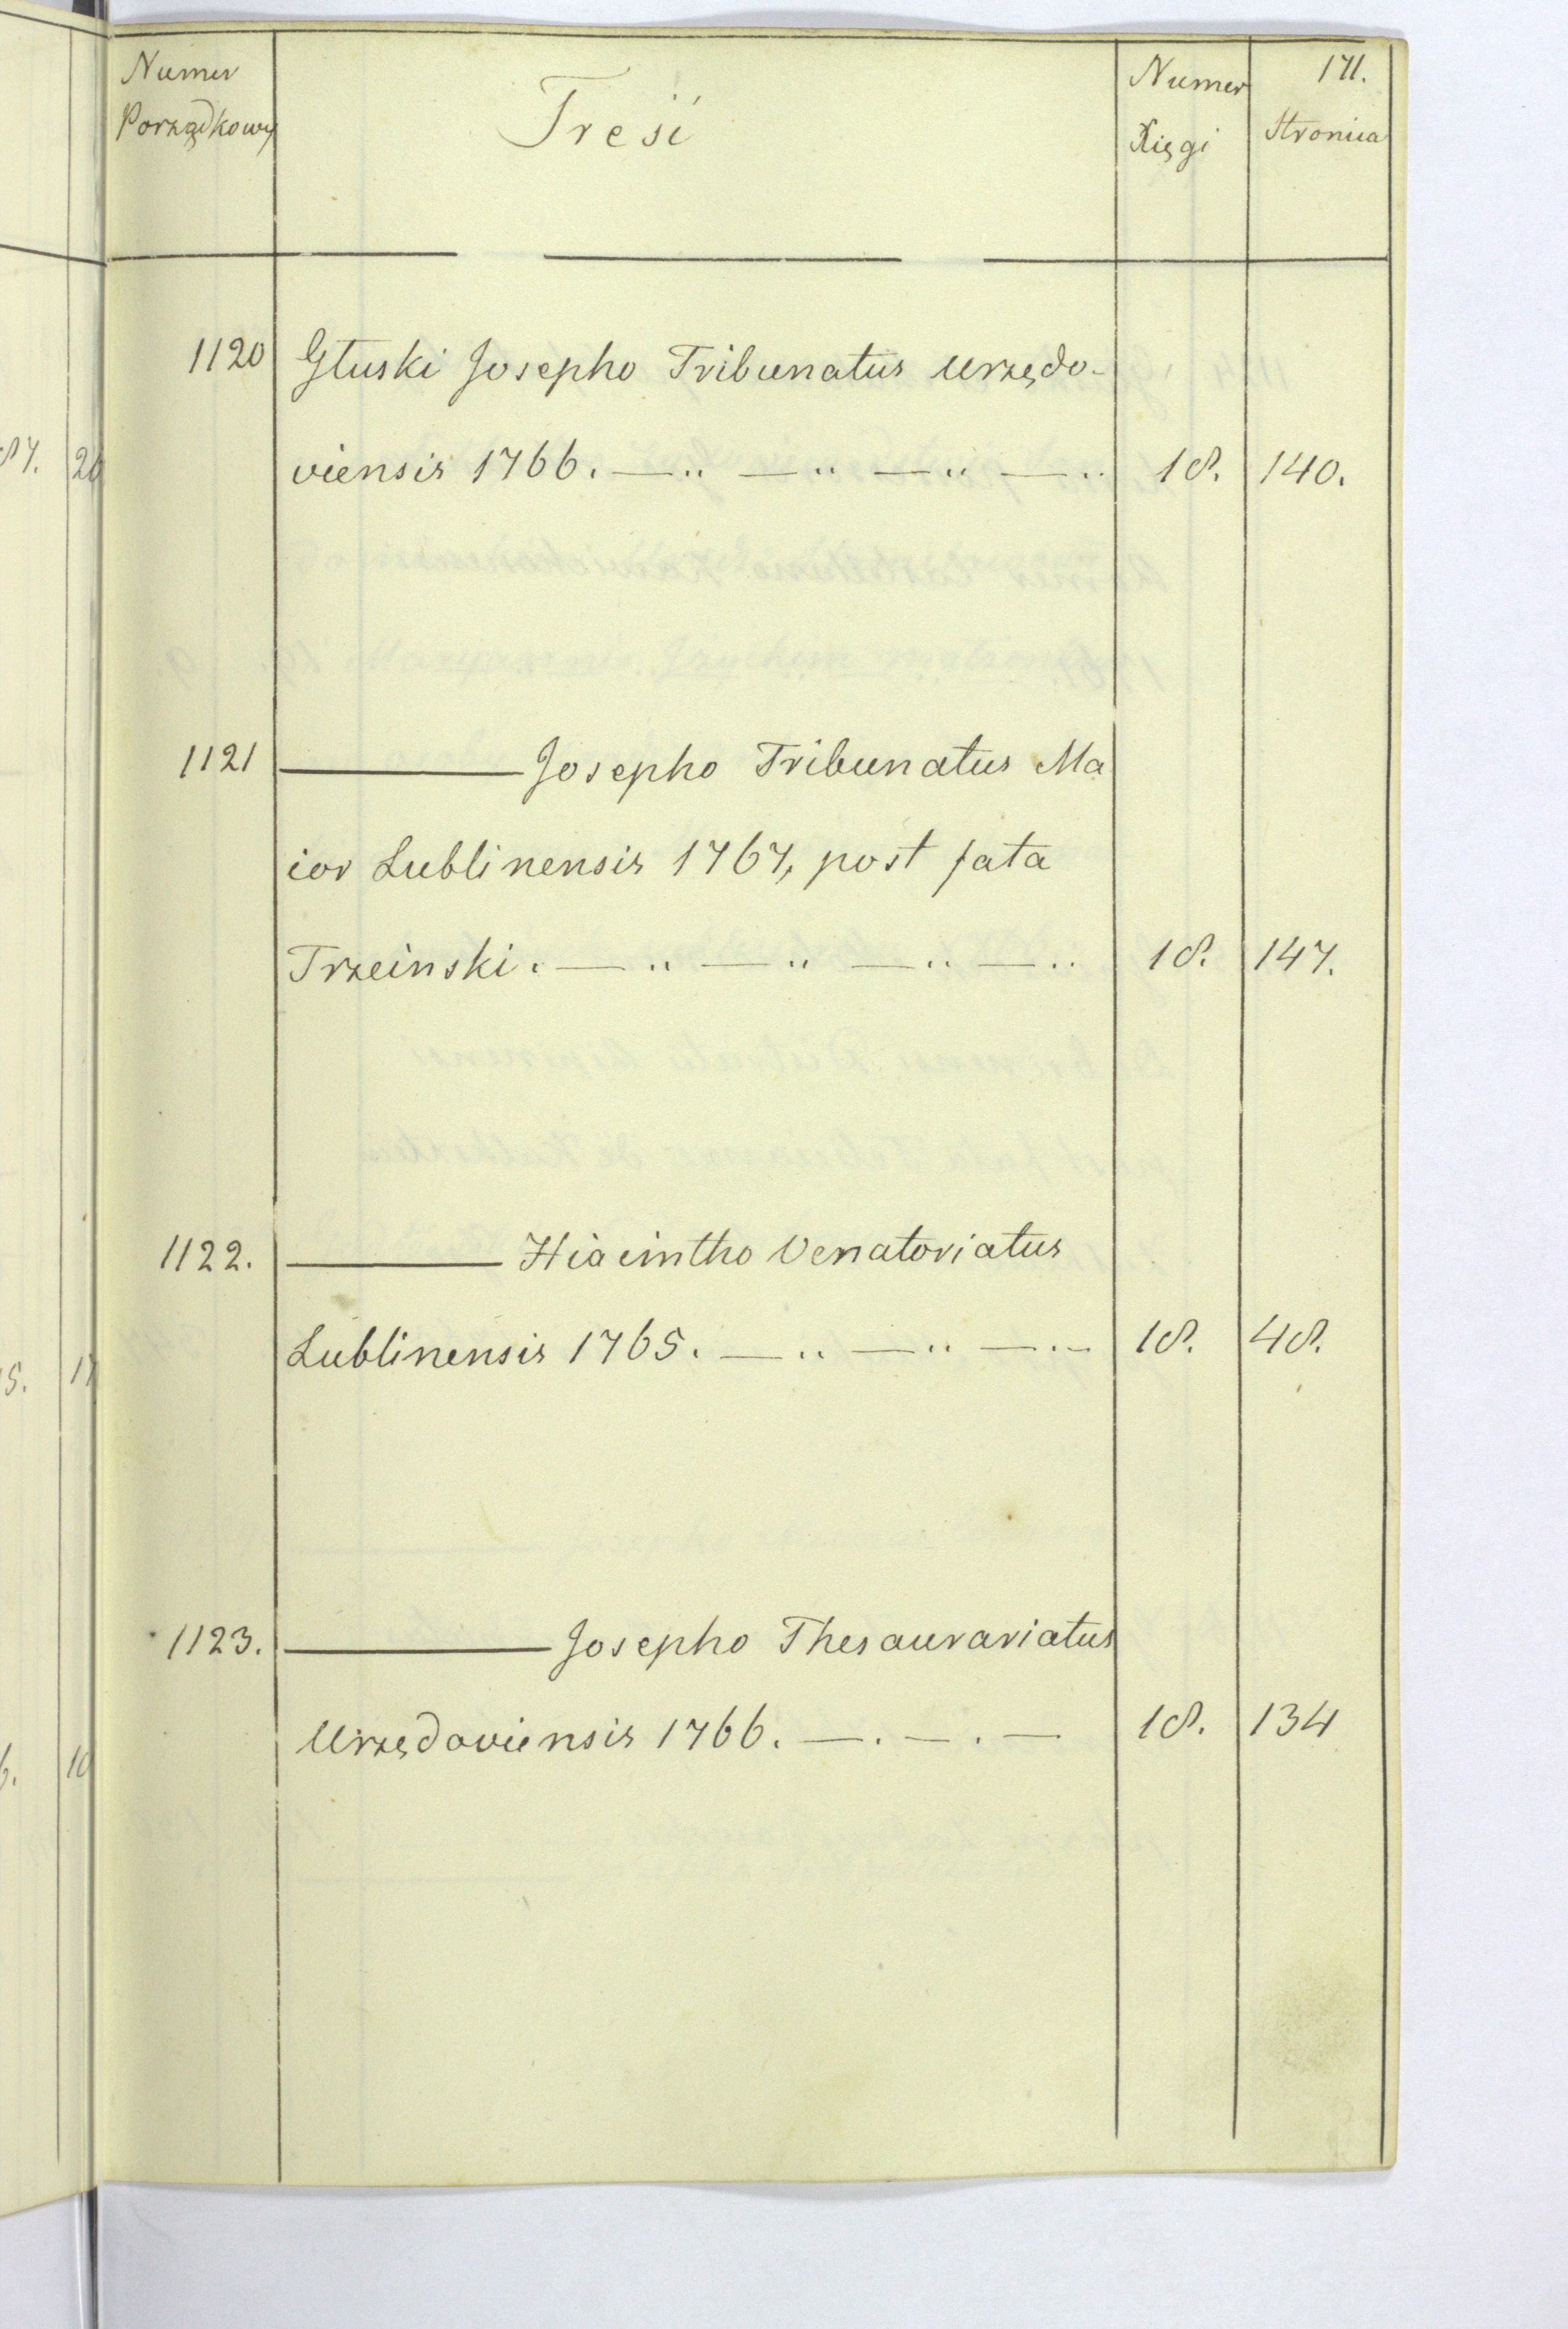 171.
Numer Porządkowy
Treść
Numer Xięgi
Stronica
1120 Głuski Josepho Tribunatus Urzędo-
viensis 1766. — „ — „ — „ — „ 18. 140.
1121 ——— Josepho Tribunatus Ma
ior Lublinensis 1767, post fata
Trzcinski. — „ — „ — „ — „ 18. 147.
1122. ——— Hiacintho Venatoriatus
Lublinensis 1765. — „ — „ — „ 18. 48.
1123. ——— Josepho Thesaurariatus
Urzędoviensis 1766. — . — . — 18. 134